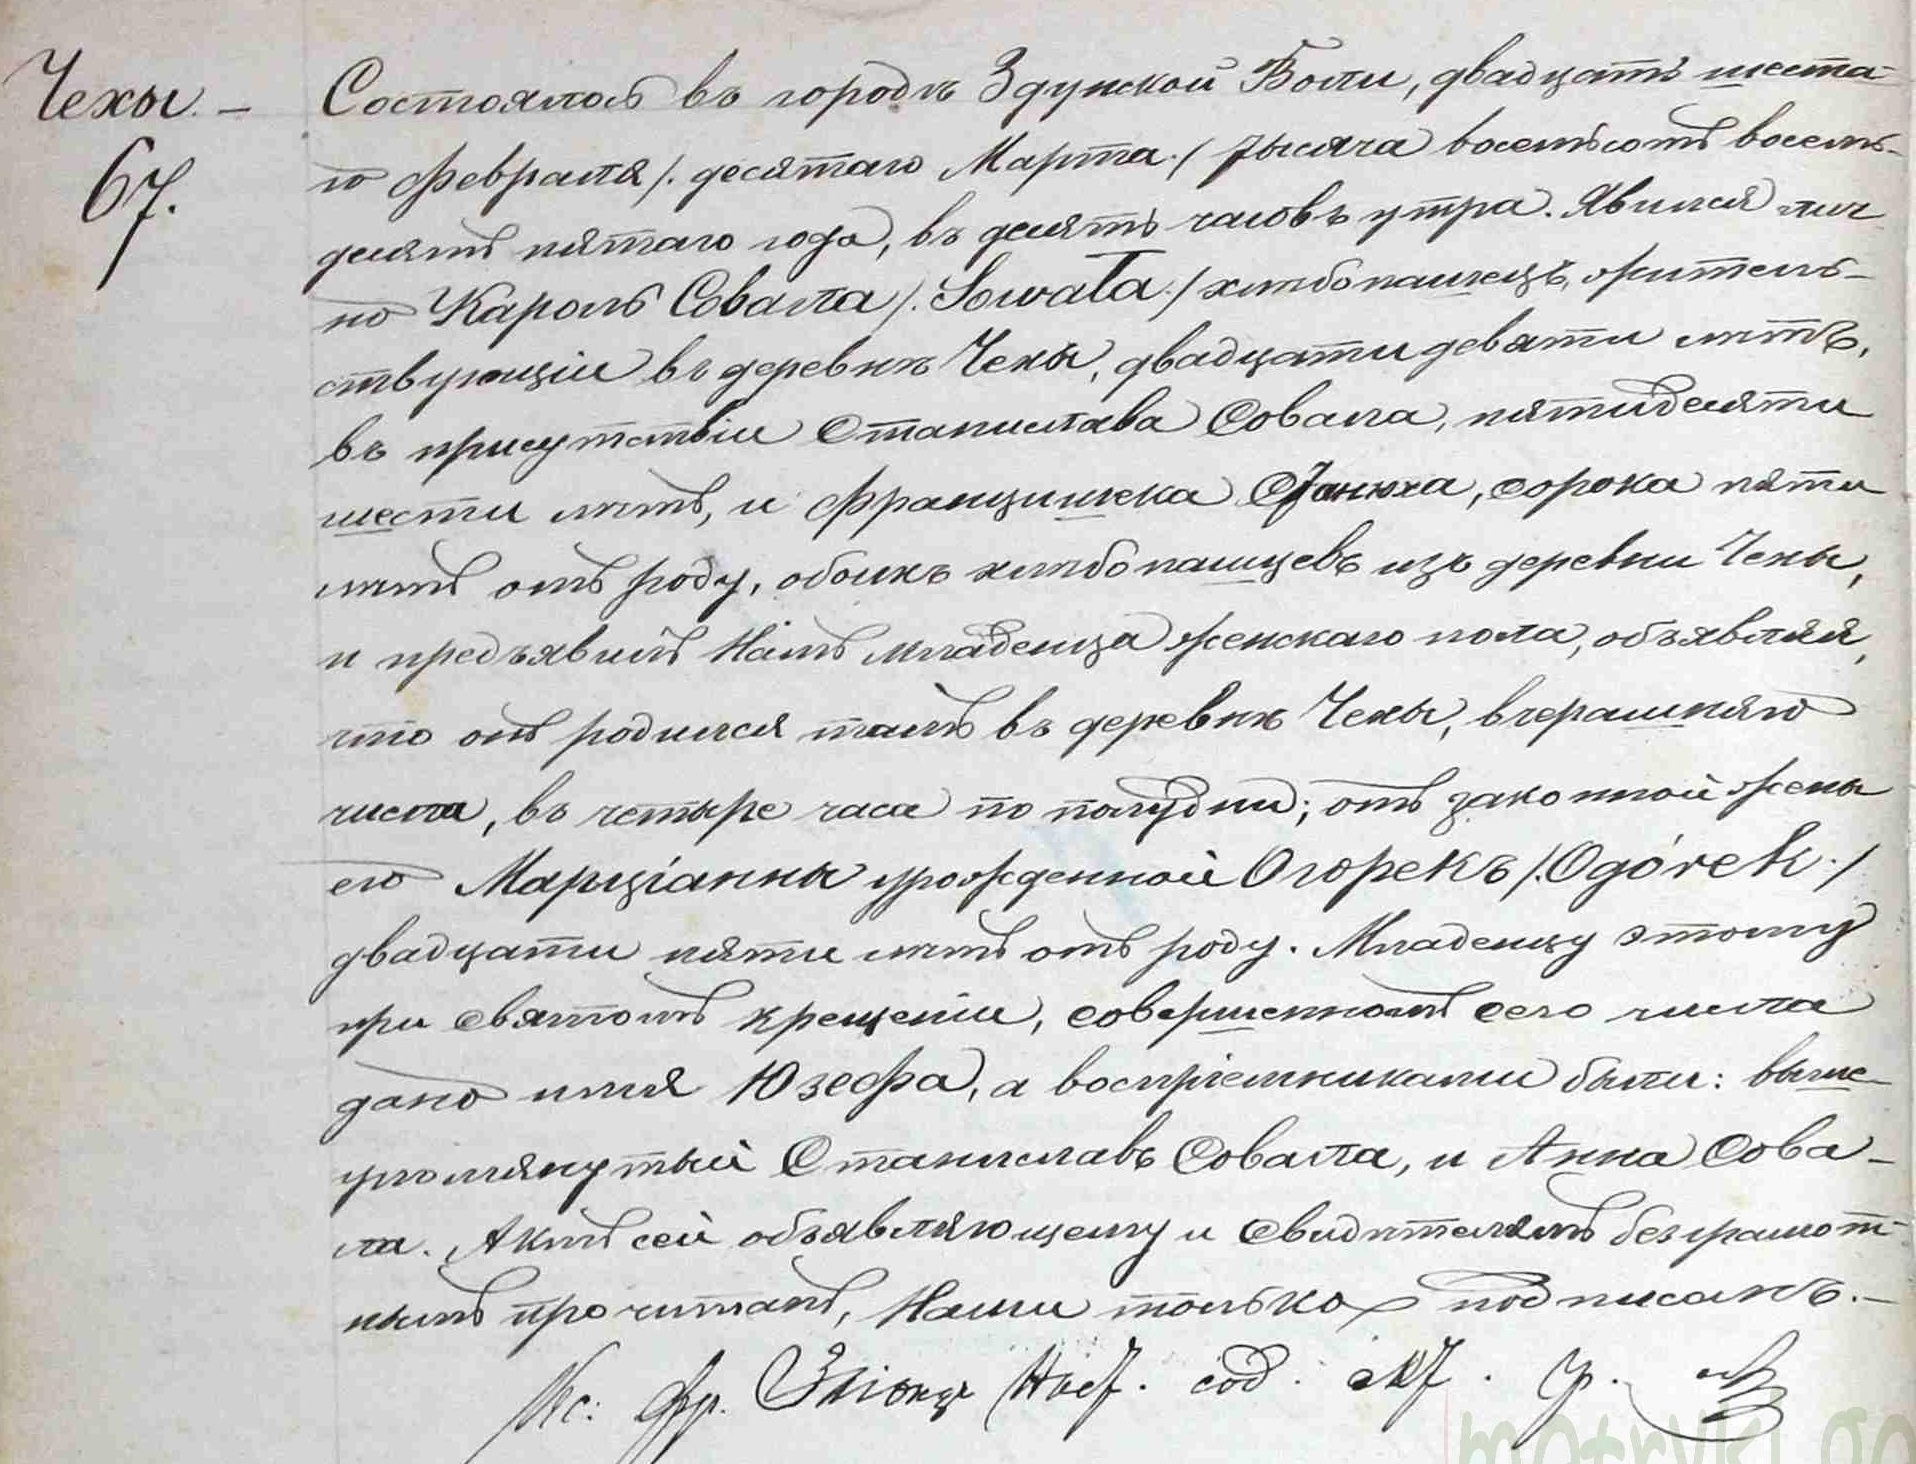 Чехы. –
67.
Состоялось въ городѣ Здунской Воли, двадцать шеста-
го февраля /. десятаго Марта ./ тысяча восемьсотъ восемь-
десятъ пятаго года, въ десять часовъ утра. Явился лич
но Кароль Совала /. Sowała ./ хлѣбопашецъ, житель-
ствующій въ деревнѣ Чехы, двадцати девяти лѣтъ,
въ присутствіи Станислава Совала, пятидесяти
шести лѣтъ, и Францишка, сорока пяти
лѣтъ отъ роду, обоихъ хлѣбопашцевъ изъ деревни Чехы,
и предъявилъ Намъ младенца женскаго пола, объявляя,
что онъ родился тамъ въ деревнѣ Чехы, вчерашняго
числа, въ четыре часа по полудни; отъ законной жены
его Марціанны урожденной Огорекъ /. Ogórek ./
двадцати пяти лѣтъ отъ роду. Младенцу этому
при святомъ крещеніи, совершенномъ сего числа
дано имя Юзефа, а воспріемниками были: выше-
упомянутый Станиславъ Совала, и Анна Сова-
ла. Актъ сей объявляющему и свидѣтелямъ безграмот-
нымъ прочитанъ, Нами только подписанъ. –
Кс: Фр. Наст. сод. акт. Гр.
matryki.go